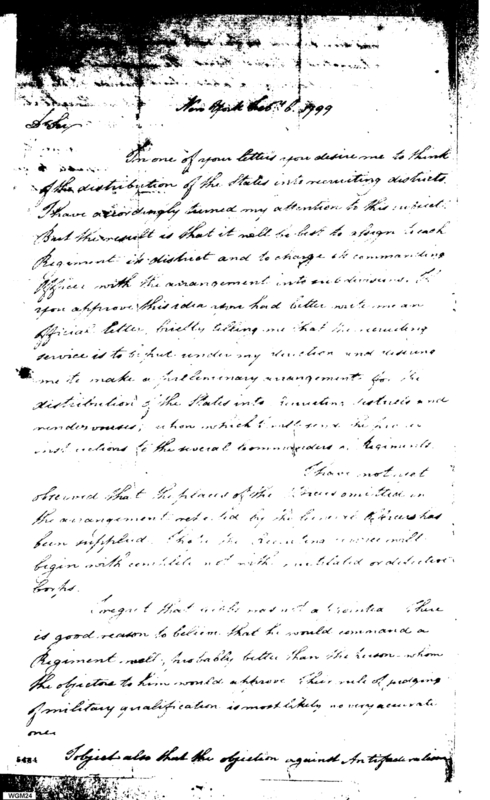 New York 6. 1799
Sir
In one of your letters you desire me to think
of the distribution of the States into recruiting districts.
I have accordingly turned my attention to this
But the result is that it will be best to assign to each
Regiment its district and to charge its commanding
Officer with the arrangement into subdivisions. If
you approve this idea you had better write me an
official letter, briefly telling me that the recruiting
service is to be put under my direction and desiring
me to make a preliminary arrangement for the
distribution of the States into districts and
rendezvouses; upon which I will send the
instructions to the several Commanders of Regiments.
I have not yet
observed that the places of the Officers omitted in
the arrangement by the General Officers has
been supplied. I hope the Recruiting service will
begin with complete not with mutilated or defective
Corps.
I regret that was not There
is good reason to believe that he would command a
Regiment well, probably better than the person whom
the objectors to him would approve Their rule of judging
of military qualification is most likely no very accurate
one.
I object also that the objection against Antifederalism
5484
WGM24